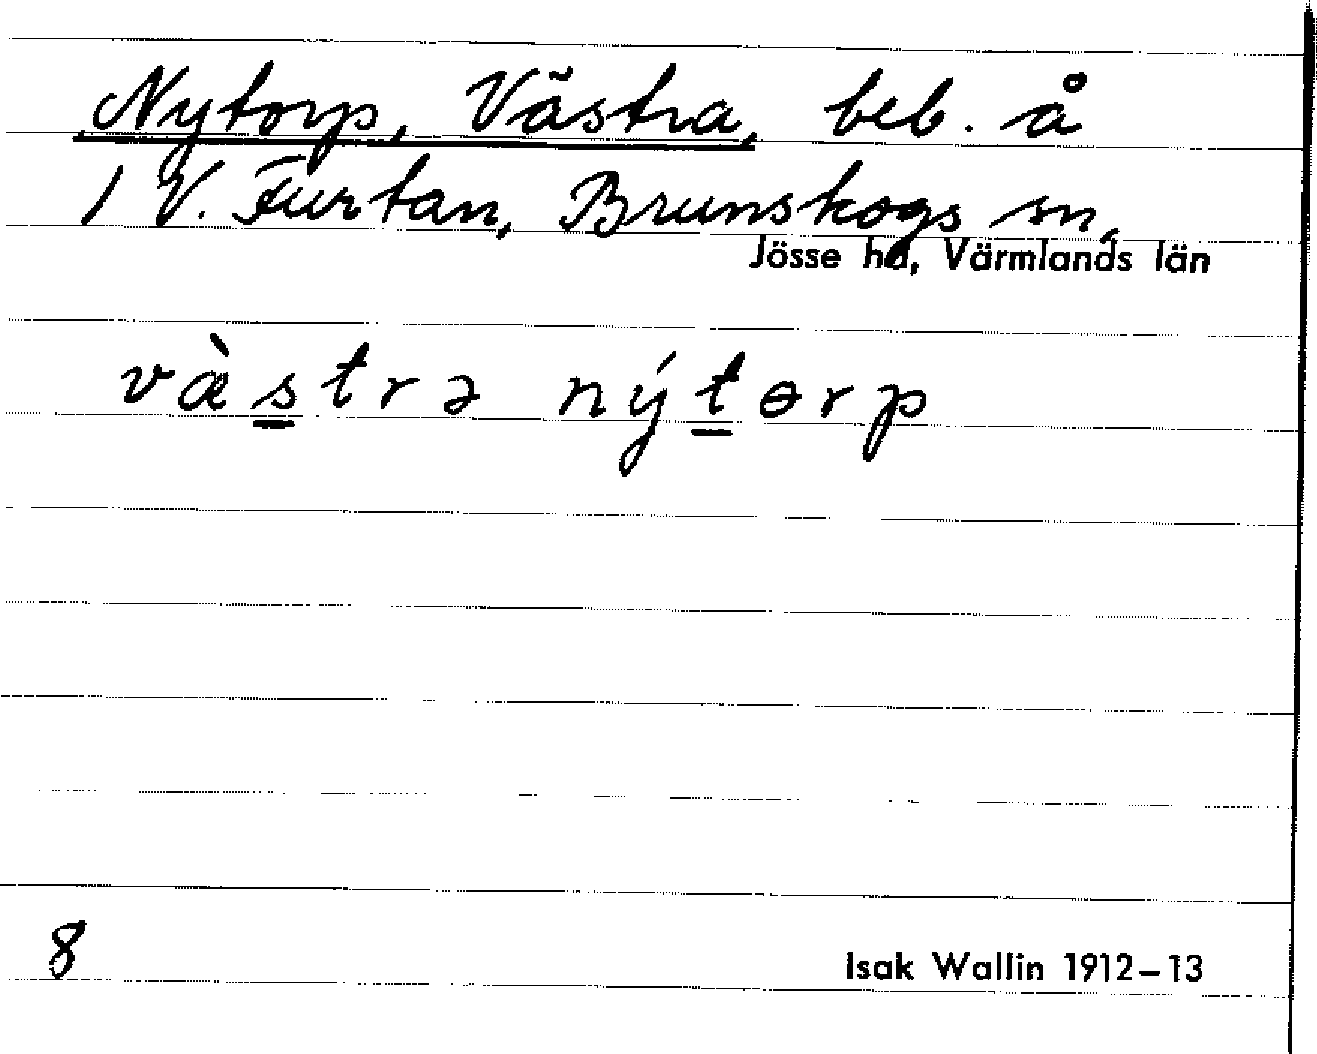 Nytorp, Västra, beb. å
1 V. Furtan, Brunskogs sn,
Jösse hd, Värmlands län
væ̀s̲trə nýt̲ɵrp
8
Isak Wallin 1912–13